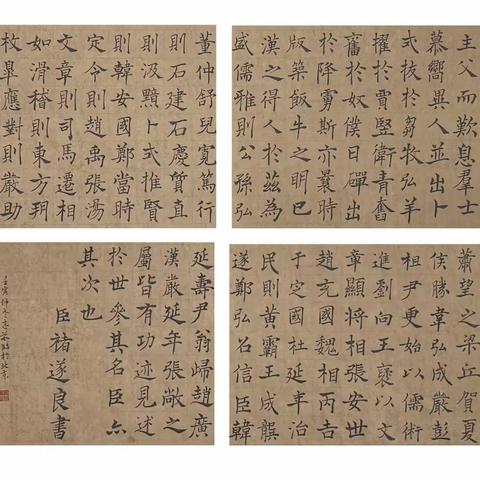 主父而歎息羣士
慕嚮異人並出卜
式拔於芻牧弘羊
擢於賈竪衛青奮
奮於奴僕日磾出
於降虜斯亦曩時
版築飯牛之明巳
漢之得人於茲為
盛儒雅則公孫弘
董仲舒兒寬篤行
則石建石慶質直
則汲黯卜式推賢
則韓安國鄭當時
定令則趙禹張湯
文章則司馬遷相
如滑稽則東方玥
枚皋應對則嚴助
蕭望之梁丘賀夏
侯勝韋弘成嚴彭
祖尹更始以儒術
進劉向王褒以文
章顯將相張安世
趙充國魏相丙吉
于定國杜延年治
民則黃霸王成龔
遂鄭弘召信臣韓
延壽尹翁歸趙廣
漢嚴延年張敞之
屬皆有功迹見述
於世參其名臣亦
其次也
臣褚遂良書
壬寅仲冬 臨於北京